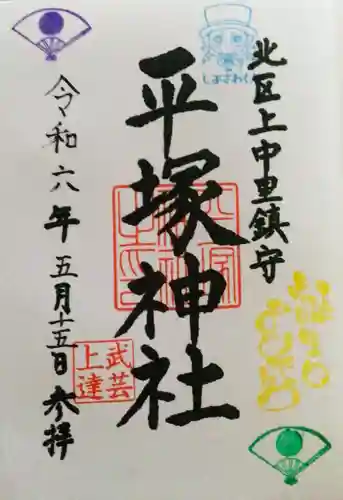 北区上中里鎮守
平塚神社
武芸
上達
令和六年五月十五日参拝